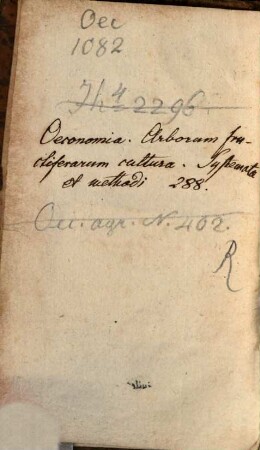 Oec
1082
Th 4 2296
Oeconomia. Arborum fru-
ctiferarum cultura. Systemata
et methodi 288.
Oec. agr. N. 402.
R